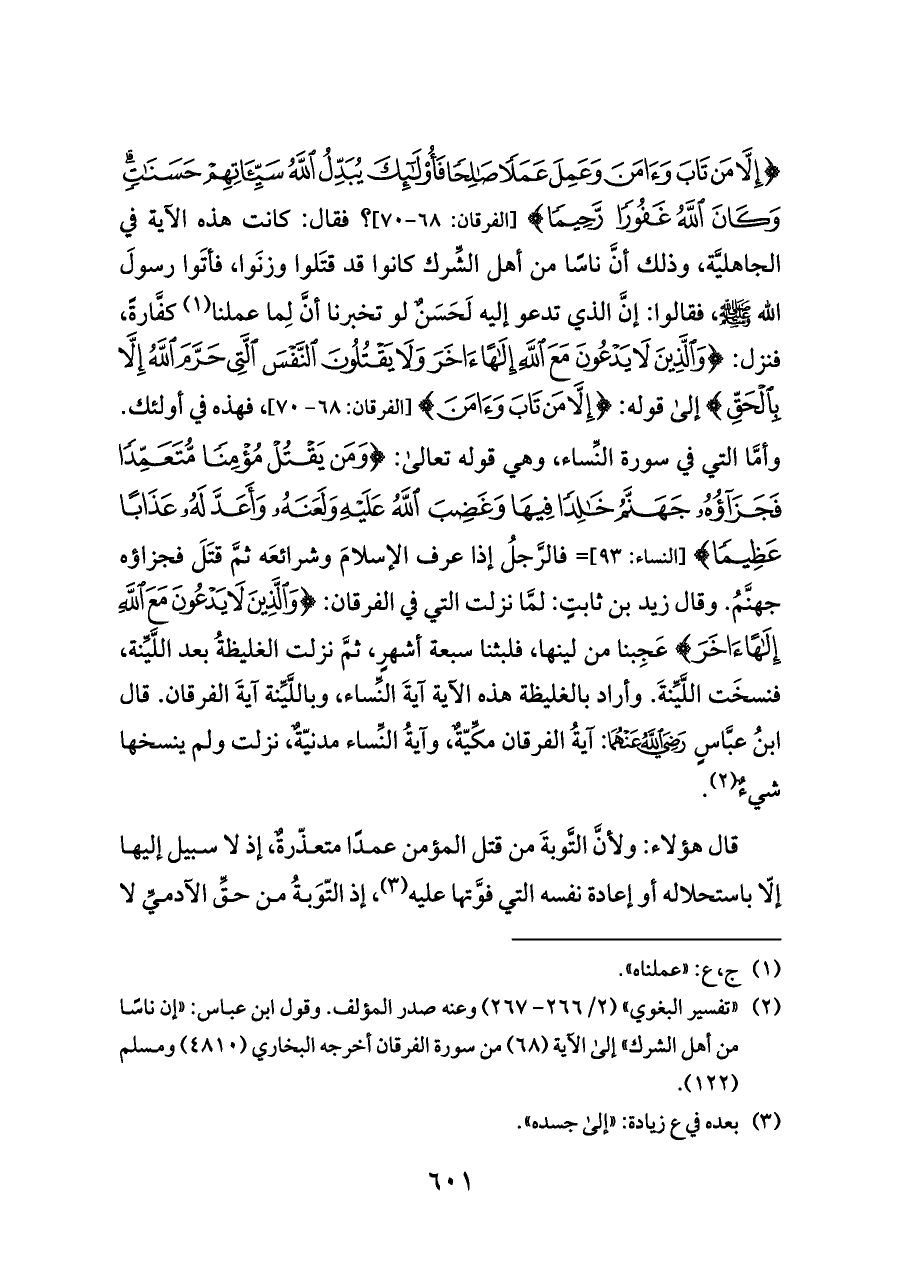 ﴿إِلَّا مَن تَابَ وَءَامَنَ وَعَمِلَ عَمَلًا صَٰلِحًا فَأُوْلَٰٓئِكَ يُبَدِّلُ ٱللَّهُ سَيِّـَٔاتِهِمْ حَسَنَٰتٖۗ
وَكَانَ ٱللَّهُ غَفُورًا رَّحِيمًا﴾ [الفرقان: ٦٨-٧٠]؟ فقال: كانت هذه الآية في
الجاهليَّة، وذلك أنَّ ناسًا من أهل الشِّرك كانوا قد قتَلوا وزنَوا، فأتَوا رسولَ
الله ﷺ، فقالوا: إنَّ الذي تدعو إليه لَحَسَنٌ لو تخبرنا أنَّ لِما عملنا(١) كفَّارةً،
فنزل: ﴿وَٱلَّذِينَ لَا يَدْعُونَ مَعَ ٱللَّهِ إِلَٰهًا ءَاخَرَ وَلَا يَقْتُلُونَ ٱلنَّفْسَ ٱلَّتِي حَرَّمَ ٱللَّهُ إِلَّا
بِٱلْحَقِّ﴾ إلىٰ قوله: ﴿إِلَّا مَن تَابَ وَءَامَنَ﴾ [الفرقان: ٦٨- ٧٠]، فهذه في أولئك.
وأمَّا التي في سورة النِّساء، وهي قوله تعالىٰ: ﴿وَمَن يَقْتُلْ مُؤْمِنًا مُّتَعَمِّدًا
فَجَزَآؤُهُۥ جَهَنَّمُ خَٰلِدًا فِيهَا وَغَضِبَ ٱللَّهُ عَلَيْهِ وَلَعَنَهُۥ وَأَعَدَّ لَهُۥ عَذَابًا
عَظِيمًا﴾ [النساء: ٩٣]= فالرَّجلُ إذا عرف الإسلامَ وشرائعَه ثمَّ قتَلَ فجزاؤه
جهنَّمُ. وقال زيد بن ثابتٍ: لمَّا نزلت التي في الفرقان: ﴿وَٱلَّذِينَ لَا يَدْعُونَ مَعَ ٱللَّهِ
إِلَٰهًا ءَاخَرَ﴾ عَجِبنا من لينها، فلبثنا سبعة أشهرٍ، ثمَّ نزلت الغليظةُ بعد اللَّيِّنة،
فنسخَت اللَّيِّنةَ. وأراد بالغليظة هذه الآية آيةَ النِّساء، وباللَّيِّنة آيةَ الفرقان. قال
ابنُ عبَّاسٍ رَضِيَ ٱللَّهُ عَنْهُمَا: آيةُ الفرقان مكِّيّةٌ، وآيةُ النِّساء مدنيّةٌ، نزلت ولم ينسخها
شيءٌ(٢).
قال هؤلاء: ولأنَّ التَّوبةَ من قتل المؤمن عمدًا متعذّرةٌ، إذ لا سبيل إليها
إلّا باستحلاله أو إعادة نفسه التي فوَّتها عليه(٣)، إذ التّوَبةُ من حقِّ الآدميِّ لا
(١) ج، ع: «عملناه».
(٢) «تفسير البغوي» (٢/ ٢٦٦- ٢٦٧) وعنه صدر المؤلف. وقول ابن عباس: «إن ناسًا
من أهل الشرك» إلىٰ الآية (٦٨) من سورة الفرقان أخرجه البخاري (٤٨١٠) ومسلم
(١٢٢).
(٣) بعده في ع زيادة: «إلىٰ جسده».
٦٠١